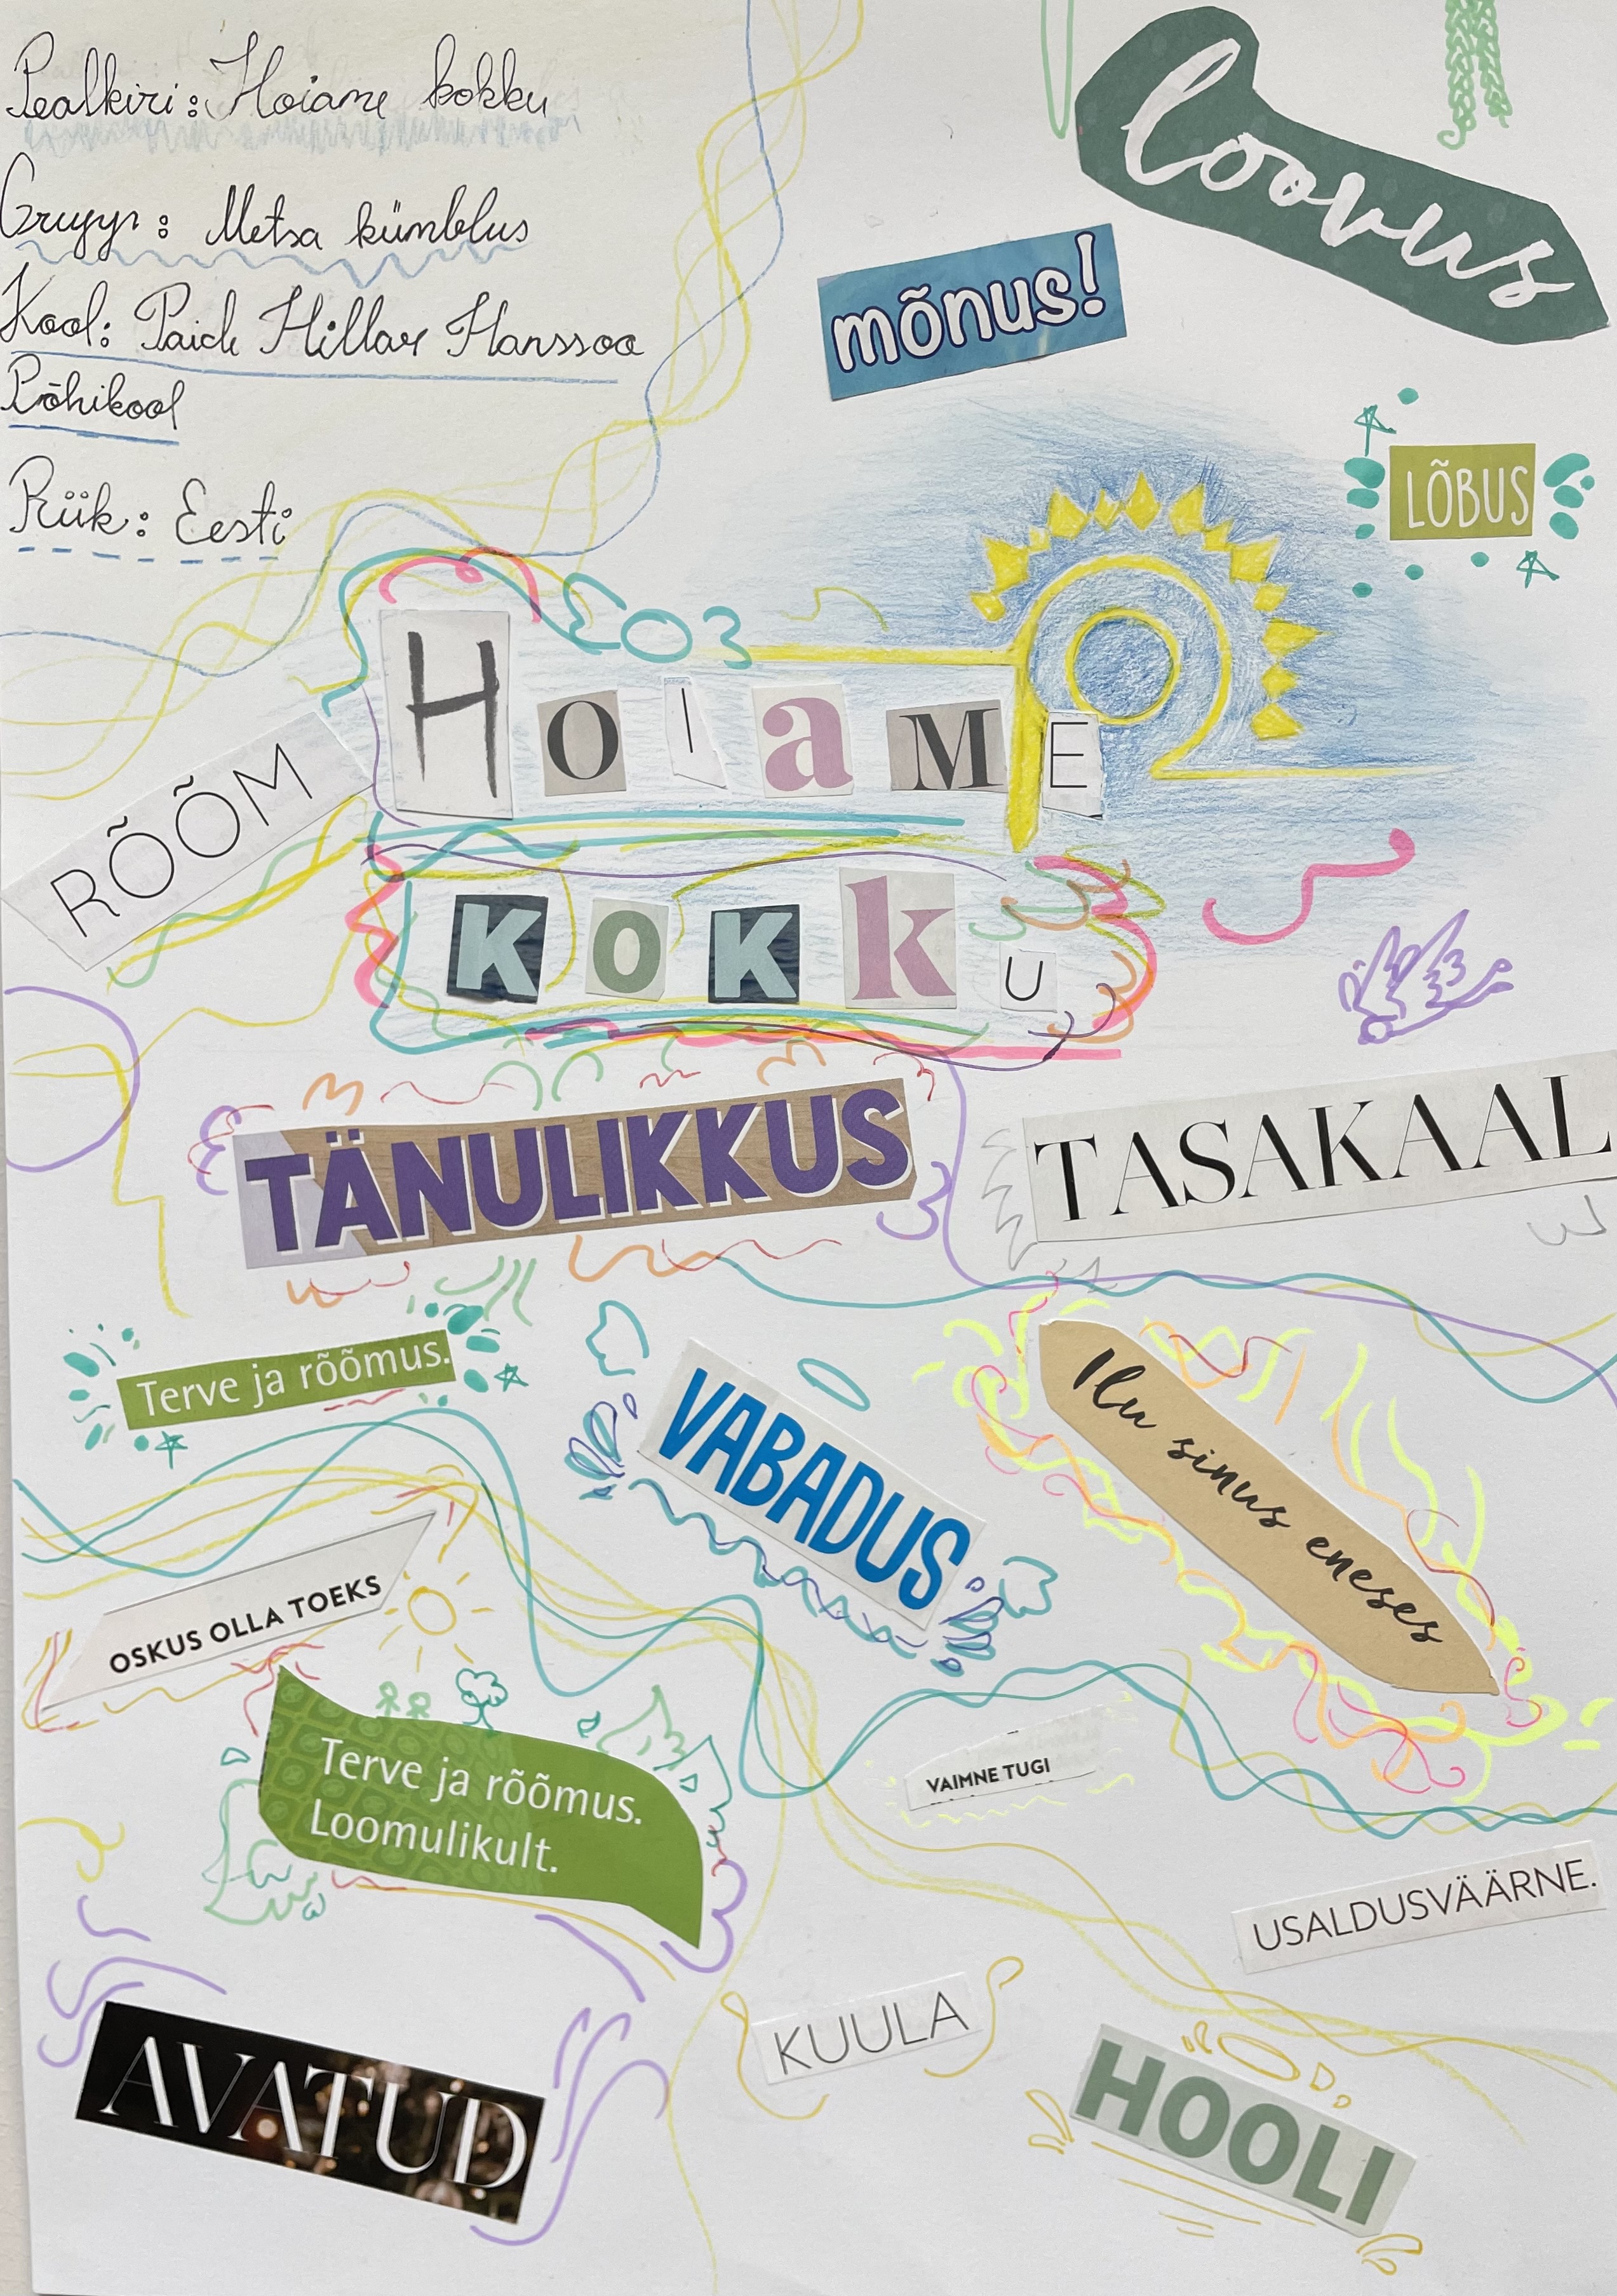 Pealkiri: Hoiame kokku
Grupp: Metsa kümblus
Kool: Paide Hillar Hanssoo
Põhikool
Riik: Eesti
loovus
mõnus!
LÕBUS
HOIaME
KOKkU
RÕÕM
TÄNULIKKUS
TASAKAAL
Terve ja rõõmus.
VABADUS
Ilu sinus eneses
OSKUS OLLA TOEKS
Terve ja rõõmus.
Loomulikult.
VAIMNE TUGI
USALDUSVÄÄRNE.
KUULA
AVATUD
HOOLI